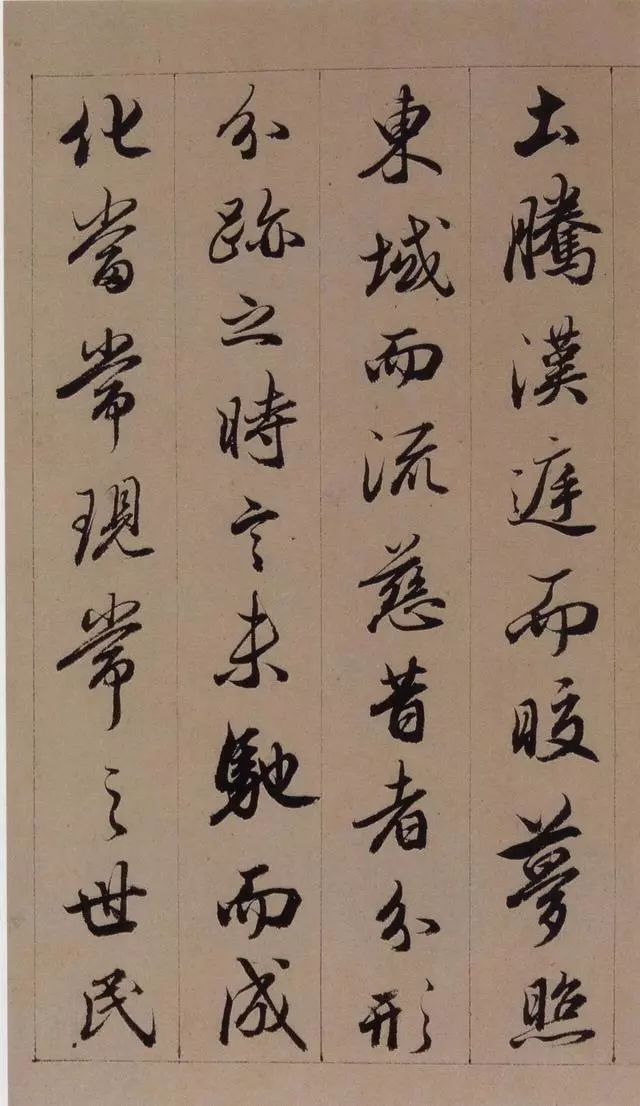 土騰漢庭而皎夢照
東域而流慈昔者分形
分跡之時言未馳而成
化當常現常之世民